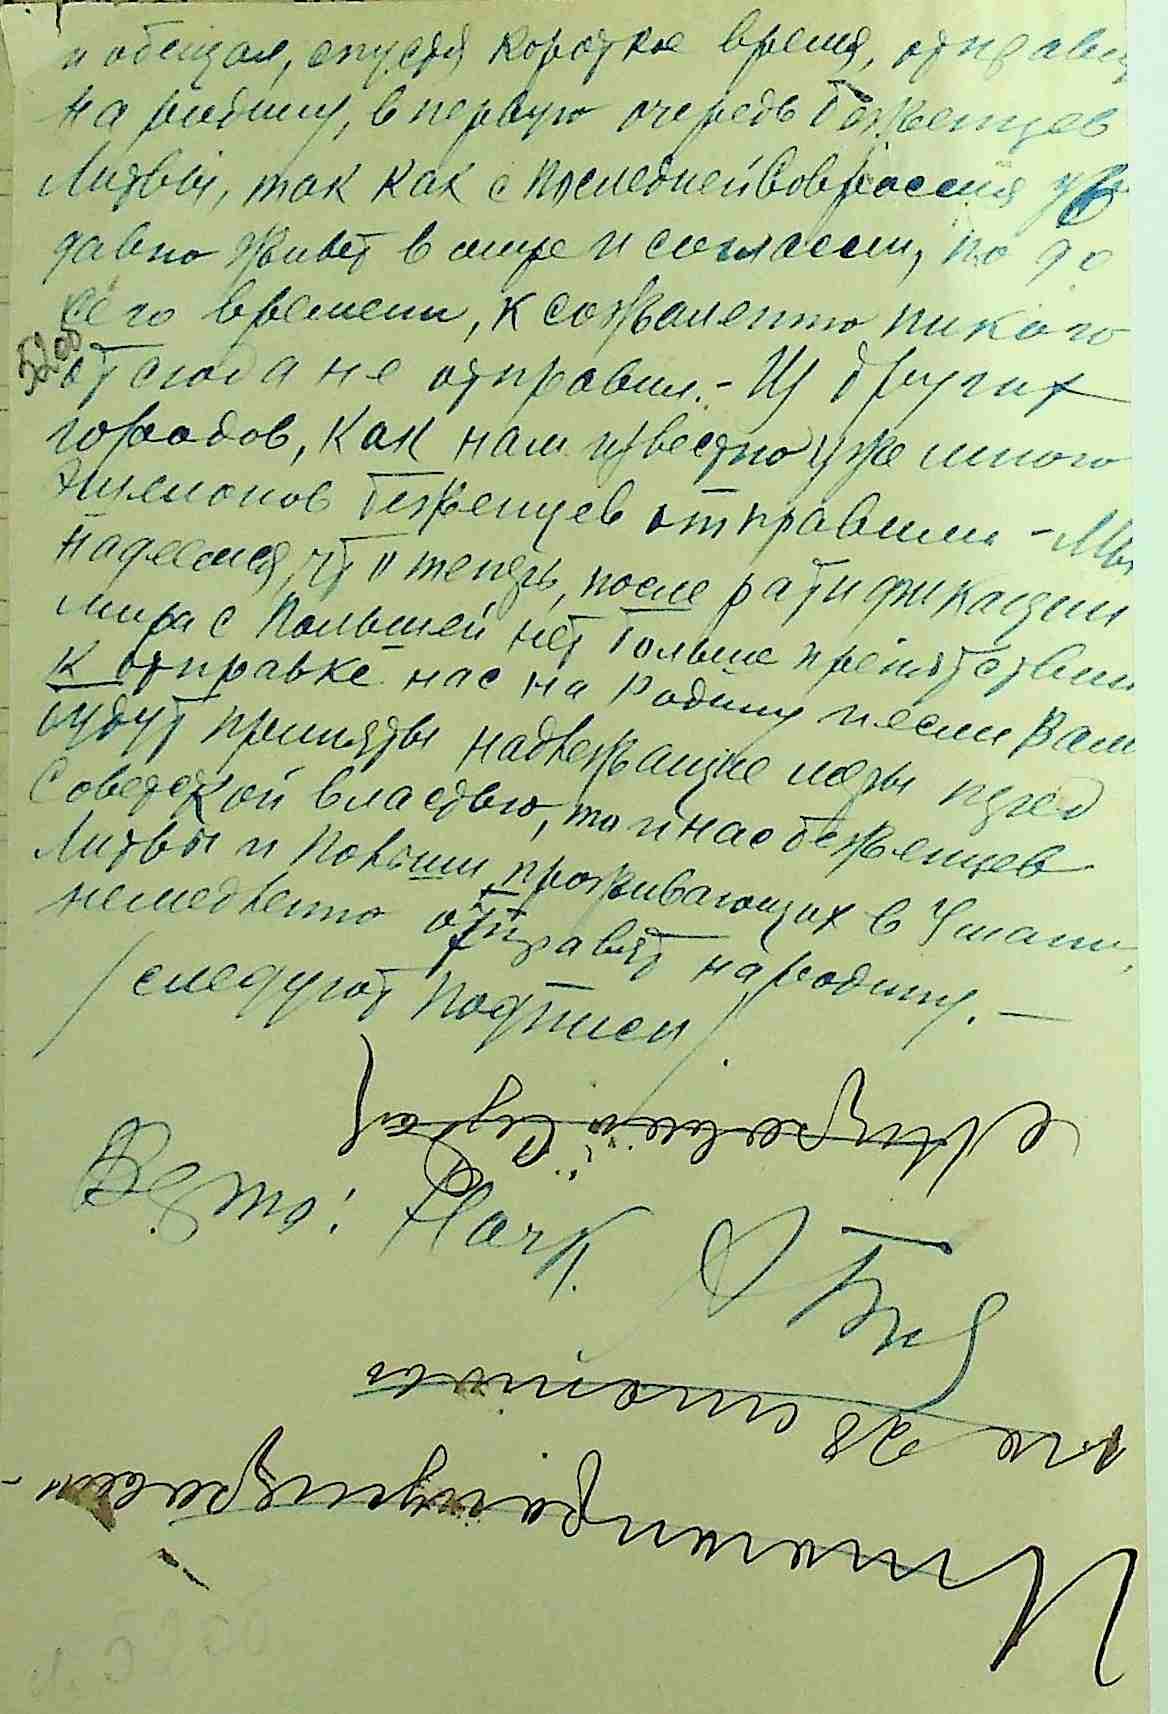 и обещал, спустя короткое время, отправит
на родину, в первую очередь беженцев
Литвы, так как с последней Совроссия уж
давно живет в мире и согласии, но до
сего времени, к сожалению никого
5200
отсюда не отправил. - Из других
городов, как нам известно уже много
эшелонов беженцев отправили - Мы
надеемся, что теперь, после ратификации
мира с Польшей нет больше препятствий
к отправке нас на родину и если Вами
будут приняты надлежащие меры перед
Советской властью, то и нас беженцев
Литвы и Польши проживающих в Умани,
немедленно отправят на родину. —
/следуют подписи/
Верно: